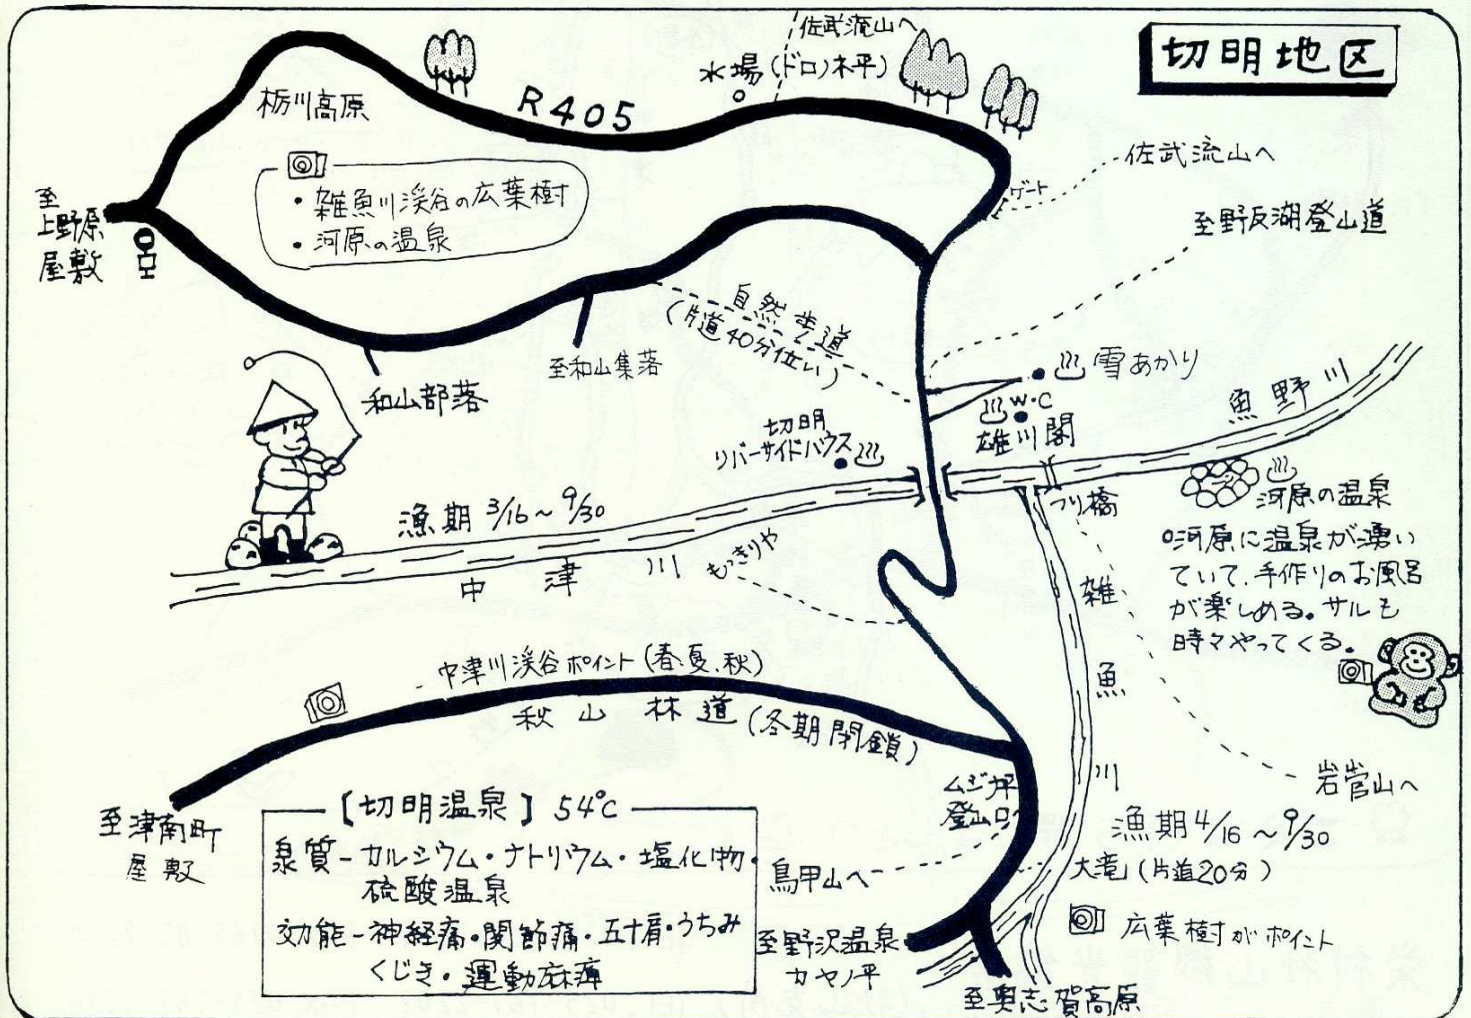 切明地区
佐武流山へ
水場(ドロノ木平)
R405
栃川高原
・雑魚川渓谷の広葉樹
・河原の温泉
至
上野原
屋敷
ゲート
佐武流山へ
至野反湖登山道
自然歩道
(片道40分位い)
至和山集落
和山部落
雪あかり
W・C
雄川閣
切明
リバーサイドハウス
魚野川
つり橋
河原の温泉
○河原に温泉が湧い
ていて、手作りのお風呂
が楽しめる。サルも
時々やってくる。
漁期 3/16~9/30
中津川
もっきりや
雑魚川
中津川渓谷ポイント(春、夏、秋)
秋山林道(冬期閉鎖)
至津南町
屋敷
岩菅山へ
漁期 4/16~9/30
ムジナ坪
登山口
大滝(片道20分)
鳥甲山へ
広葉樹がポイント
[切明温泉] 54℃
泉質-カルシウム・ナトリウム・塩化物・
硫酸温泉
効能-神経痛・関節痛・五十肩・うちみ
くじき・運動麻痺
至野沢温泉
カヤノ平
至奥志賀高原